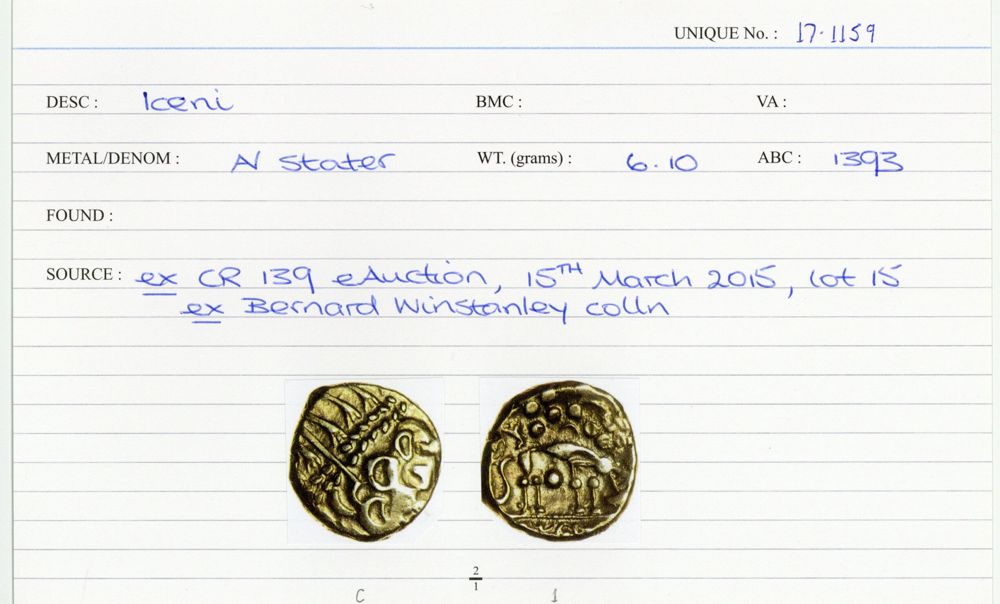 UNIQUE No. : 17.1159
DESC : Iceni BMC : VA :
METAL/DENOM : N Stater WT. (grams) : 6.10 ABC : 1393
FOUND :
SOURCE : ex CR 139 eAuction, 15TH March 2015, lot 15
ex Bernard Winstanley colln
2
1
C 1